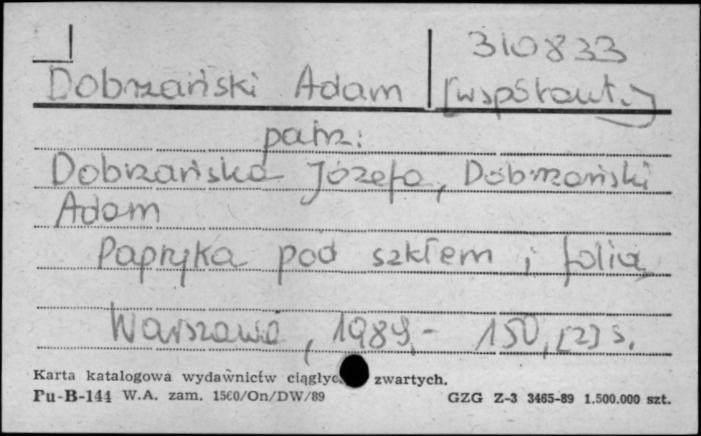 310833
Dobrzański Adam [współaut.]
patrz:
Dobrzańska Józefa, Dobrzański
Adam
Papryka pod szkłem i folią
Warszawa, 1989.- 150, [2] s.
Karta katalogowa wydawnictw ciągłyc zwartych.
Pu-B-144 W.A. zam. 1560/On/DW/89 GZG Z-3 3465-89 1.500.000 szt.